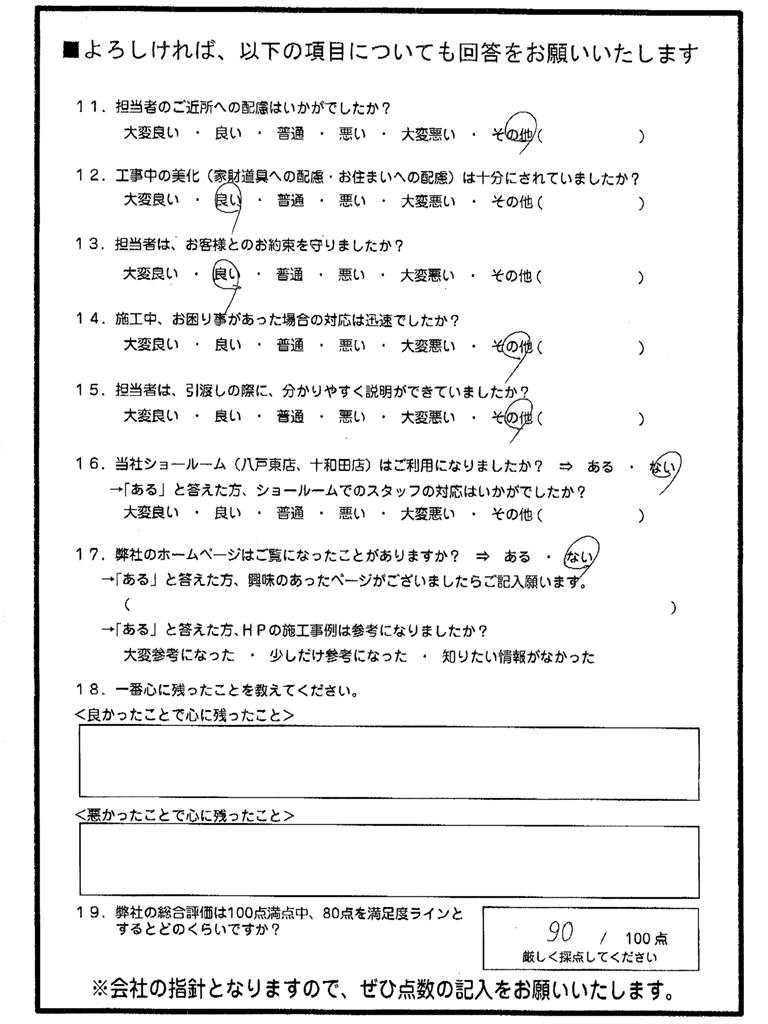 ■よろしければ、以下の項目についても回答をお願いいたします
１１．担当者のご近所への配慮はいかがでしたか？
大変良い ・ 良い ・ 普通 ・ 悪い ・ 大変悪い ・ その他（ ）
１２．工事中の美化（家財道具への配慮・お住まいへの配慮）は十分にされていましたか？
大変良い ・ 良い ・ 普通 ・ 悪い ・ 大変悪い ・ その他（ ）
１３．担当者は、お客様とのお約束を守りましたか？
大変良い ・ 良い ・ 普通 ・ 悪い ・ 大変悪い ・ その他（ ）
１４．施工中、お困り事があった場合の対応は迅速でしたか？
大変良い ・ 良い ・ 普通 ・ 悪い ・ 大変悪い ・ その他（ ）
１５．担当者は、引渡しの際に、分かりやすく説明ができていましたか？
大変良い ・ 良い ・ 普通 ・ 悪い ・ 大変悪い ・ その他（ ）
１６．当社ショールーム（八戸東店、十和田店）はご利用になりましたか？ ⇒ ある ・ ない
→「ある」と答えた方、ショールームでのスタッフの対応はいかがでしたか？
大変良い ・ 良い ・ 普通 ・ 悪い ・ 大変悪い ・ その他（ ）
１７．弊社のホームページはご覧になったことがありますか？ ⇒ ある ・ ない
→「ある」と答えた方、興味のあったページがございましたらご記入願います。
（ ）
→「ある」と答えた方、ＨＰの施工事例は参考になりましたか？
大変参考になった ・ 少しだけ参考になった ・ 知りたい情報がなかった
１８．一番心に残ったことを教えてください。
＜良かったことで心に残ったこと＞
＜悪かったことで心に残ったこと＞
１９．弊社の総合評価は100点満点中、80点を満足度ラインと
するとどのくらいですか？
90 / 100点
厳しく採点してください
※会社の指針となりますので、ぜひ点数の記入をお願いいたします。